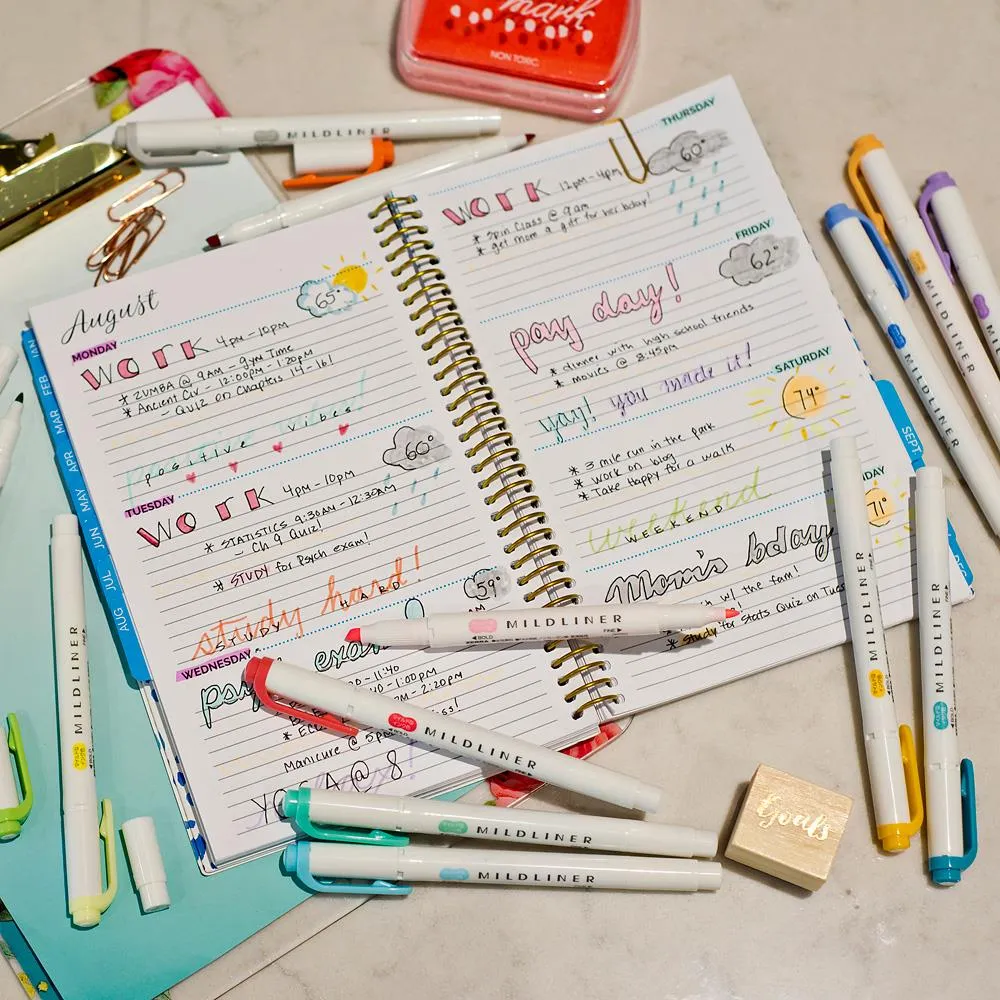 mark
NON TOXIC
MILDLINER
August
MONDAY
65°
WORK 4pm-10pm
* ZUMBA @ 9AM - gym Time
* Ancient Civ - 12:00pm - 1:20pm
- QUIZ on Chapters 14-16!
positive vibes!
positive vibes
TUESDAY
60°
WORK 4pm-10pm
* STATISTICS 9:30AM - 12:30AM
- Ch 9 Quiz!
* STUDY for Psych exam!
study hard!
STUDY
WEDNESDAY
59°
- 2:20pm
Manicure @ 5pm
@ 8
THURSDAY
60°
WORK 12pm-4pm
* Spin Class @ 9am
* get mom a gift for her bday!
FRIDAY
62°
pay day!
* dinner with high school friends
* movies @ 8:45pm
yay! you made it!
SATURDAY
74°
* 3 mile run in the park
* Work on blog
* Take Happy for a walk
weekend
WEEKEND
71°
Mom's bday
w/ the fam!
* Study for Stats Quiz on Tues
JAN
FEB
MAR
APR
MAY
JUN
JUL
AUG
SEPT
MILDLINER
MILDLINER
MILDLINER
MILDLINER
BOLD
MILDLINER
FINE
MILDLINER
MILDLINER
MILDLINER
MILDLINER
MILDLINER
Goals